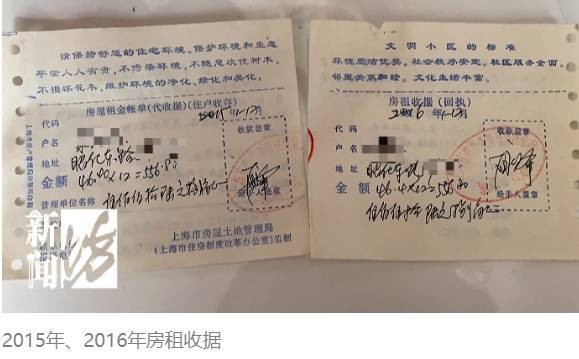 请保持舒适的住宅环境。保护环境和生态
平衡人人有责，不污染环境，不随意砍伐树木，
不损坏花木，维护环境的净化、绿化和美化。
房屋租金帐单(代收据)(住户收存)
代码
2015 1-12月
收款盖章
户名
地址
昭化东路
金额
46.40×12=556.80
管理单位名称
伍佰伍拾陆元捌角正
经手人盖章
上海市房屋土地管理局
(上海市住房制度改革办公室)监制
文明小区的标准
环境整洁优美。社会秩序安定。社区服务全面。
邻里关系和睦。文化生活丰富。
房租收据(回执)
代码
2016 1-12月
收款盖章
户名
地址
昭化东路
金额
46.40×12=556.80
伍佰伍拾陆元捌角正
经手人盖章
新闻坊
2015年、2016年房租收据